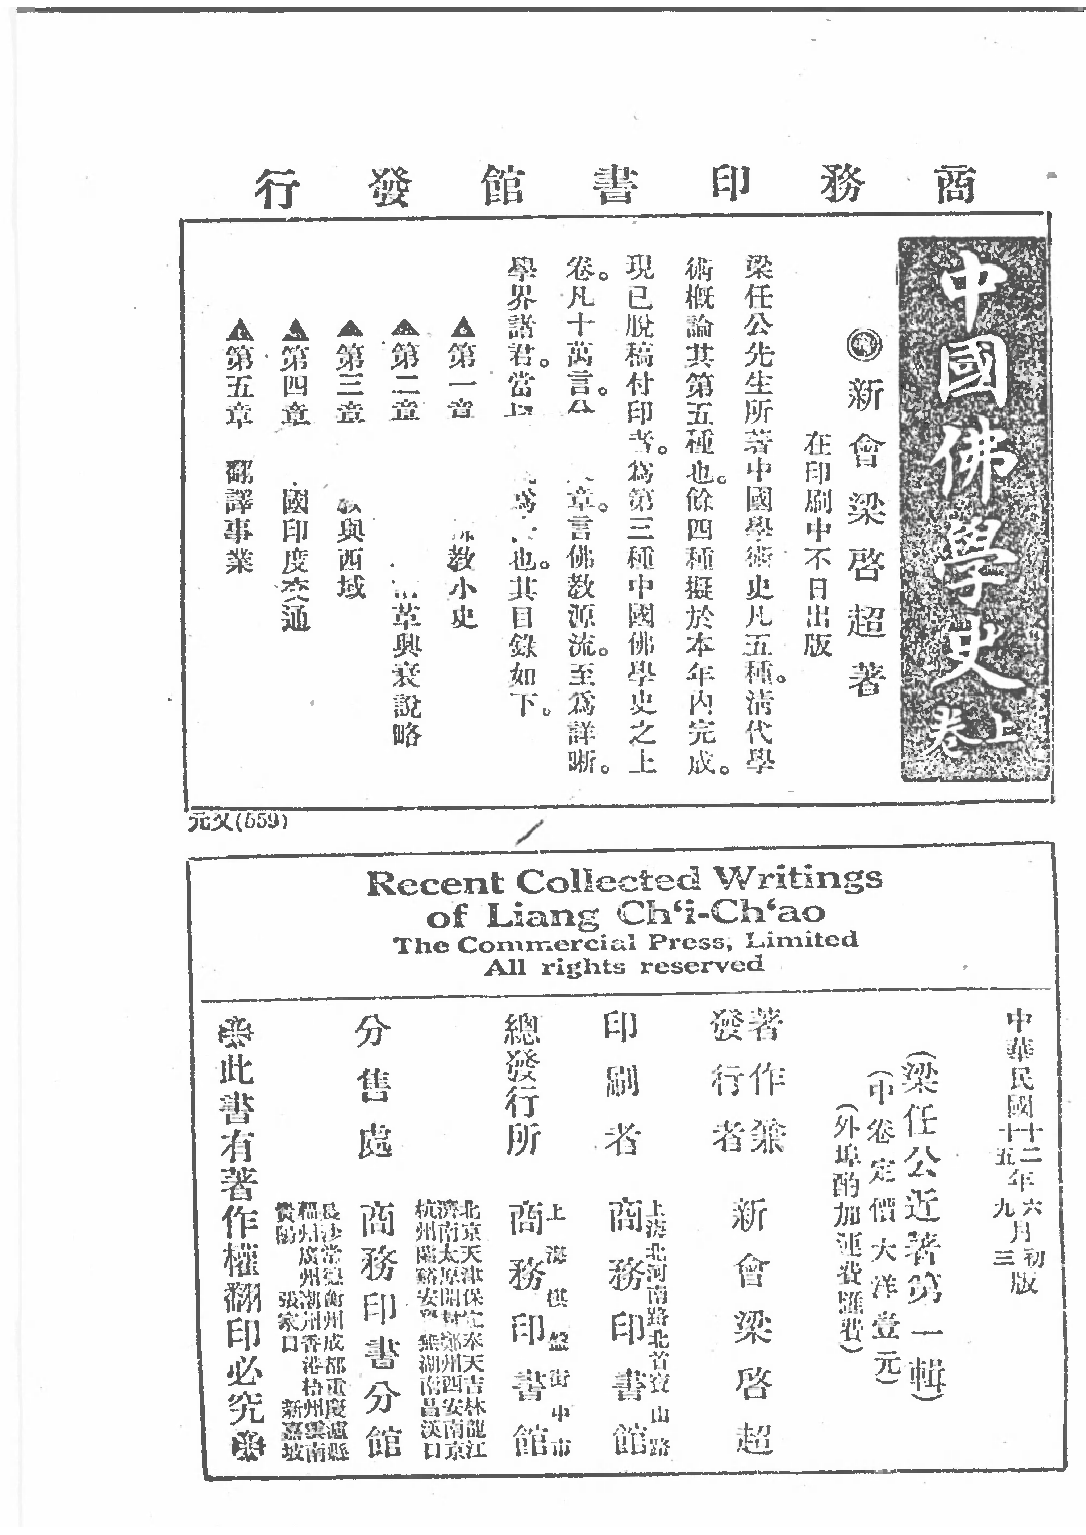 商務印書館發行
中國佛學史
上卷
新會梁啓超著
在印刷中不日出版
梁任公先生所著中國學術史凡五種。淸代學
術概論其第五種也。餘四種擬於本年內完成。
現已脫稿付印者。爲第三種中國佛學史之上
卷。凡十萬言。
章。言佛教源流。至爲詳晰。
學界諸君。當
爲
也。其目錄如下。
▲第一章
教小史
▲第二章
革興衰說略
▲第三章
教與西域
▲第四章
國印度交通
▲第五章 翻譯事業
元父(559)
Recent Collected Writings
of Liang Ch‘i-Ch‘ao
The Commercial Press, Limited
All rights reserved
中華民國十二年六月初版
十五年九月三版
(梁任公近著第一輯)
(中卷定價大洋壹元)
(外埠酌加運費匯費)
著作兼
發行者
新會梁啓超
印刷者
上海北河南路北首寶山路
商務印書館
總發行所
上海棋盤街中市
商務印書館
分售處
北京天津保定奉天吉林龍江
濟南太原開封鄭州西安南京
杭州蘭谿安慶蕪湖南昌漢口
商務印書分館
長沙常德衡州成都重慶瀘縣
福州廣州潮州香港梧州雲南
貴陽 張家口 新嘉坡
此書有著作權翻印必究